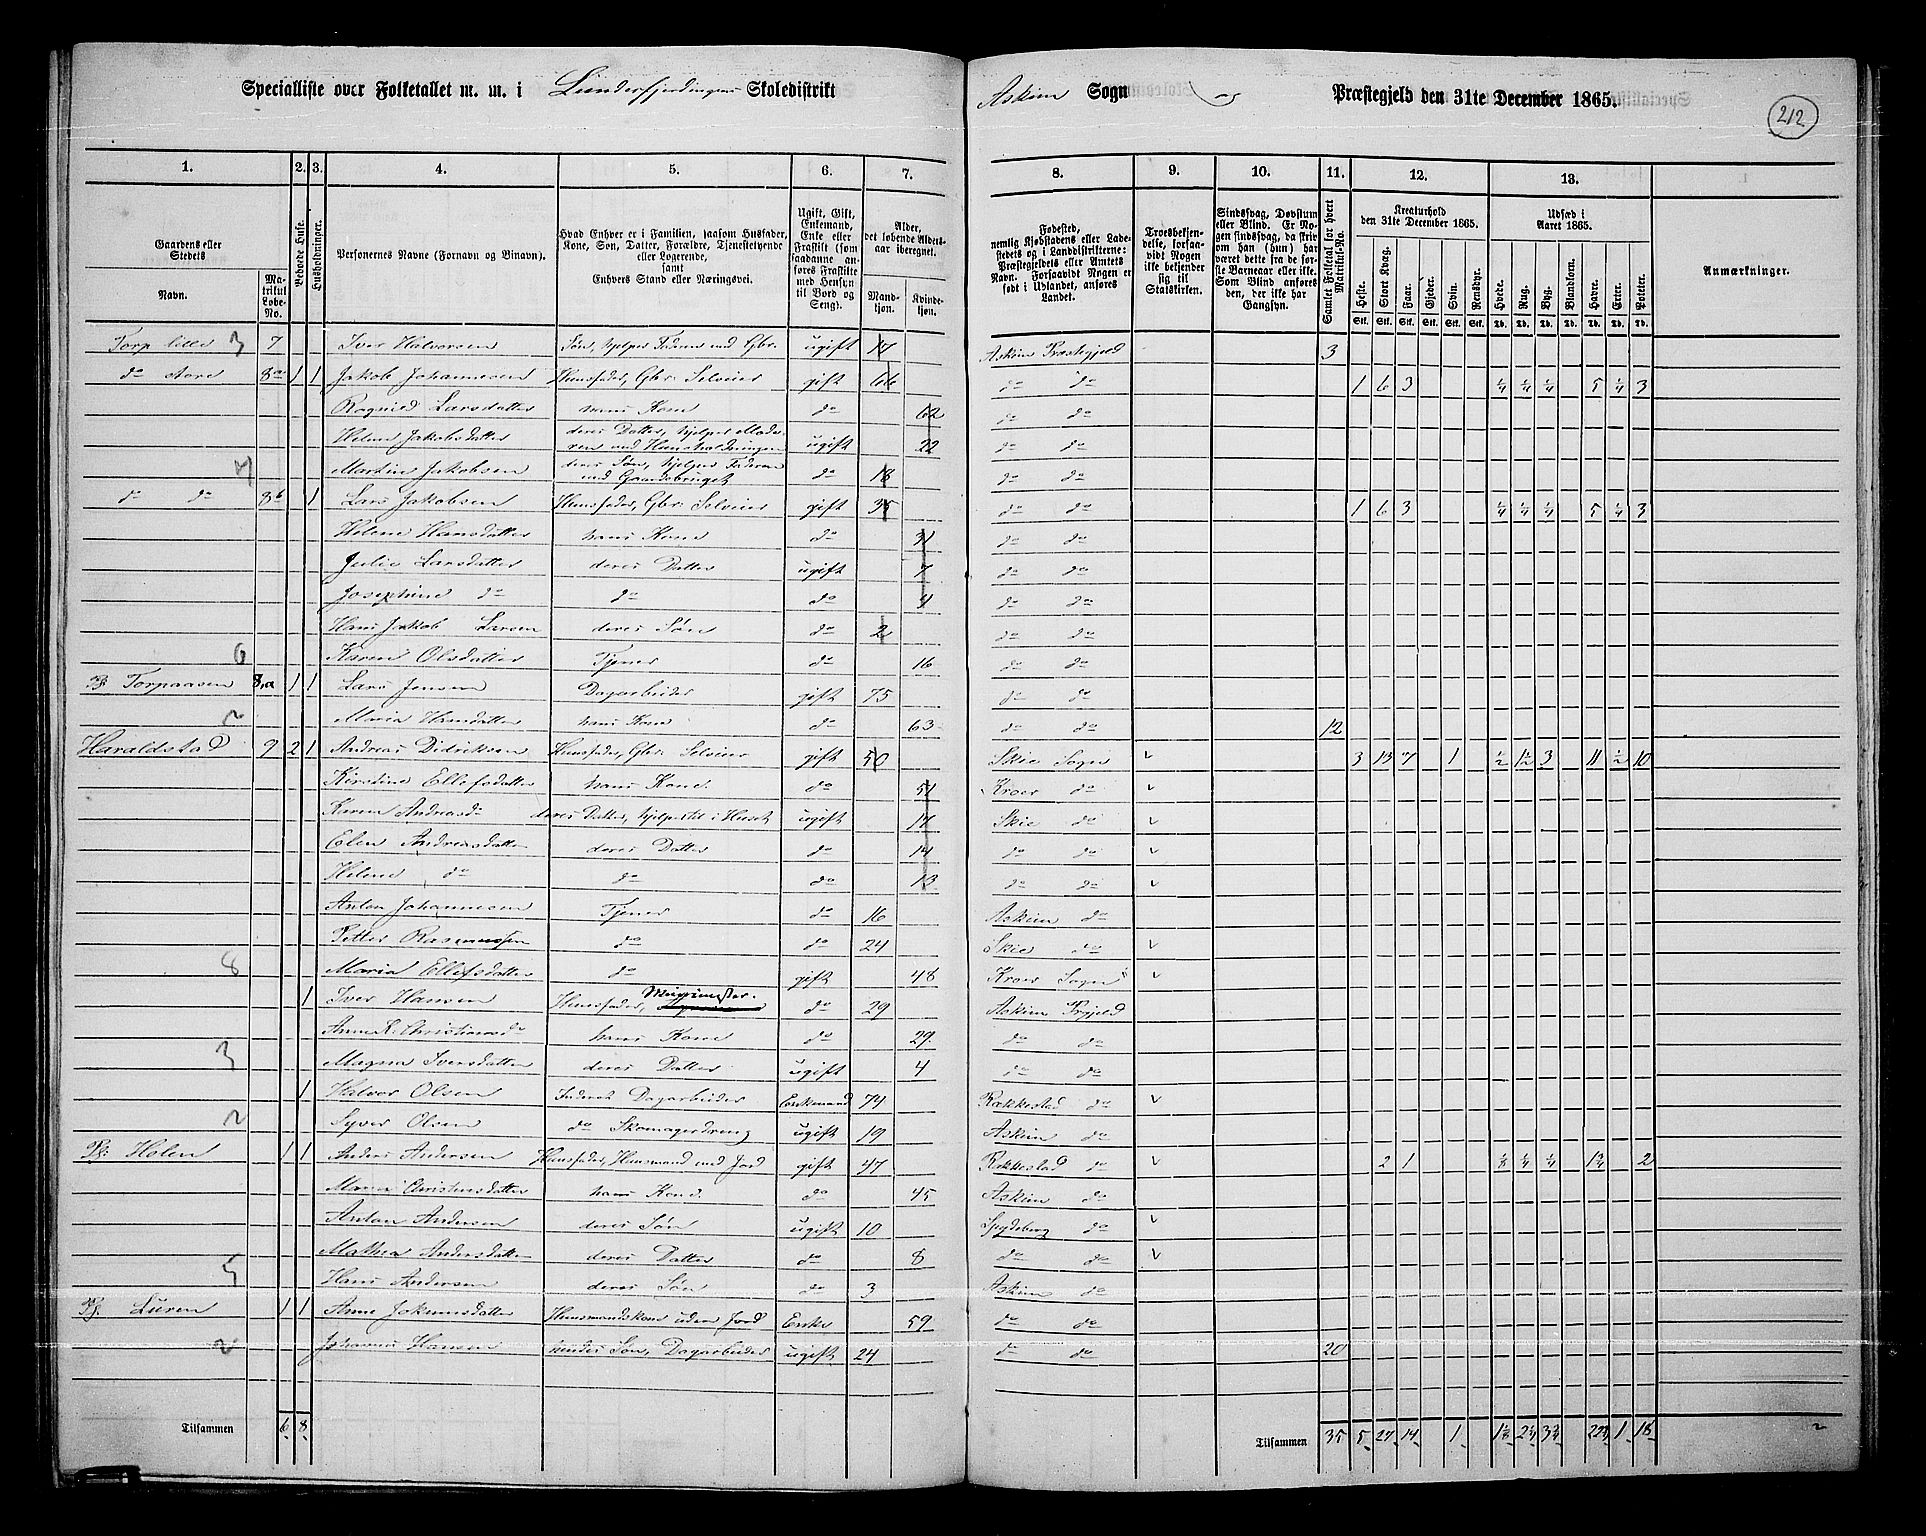 Specialliste over Folketallet m. m. i Lunderfjerdingens Skoledistrikt Askim Sogn og Præstegjeld den 31te December 1865.
212
1. 2. 3. 4. 5. 6. 7. 8. 9. 10. 11. 12. 13.
Gaardens eller Stedets Navn. Matrikul Løbe-No. Beboede Huse. Husholdninger. Personernes Navne (Fornavn og Binavn). Hvad Enhver er i Familien, saasom Husfader, Kone, Søn, Datter, Forældre, Tjenestetyende eller Logerende, samt Enhvers Stand eller Næringsvei. Ugift, Gift, Enkemand, Enke eller Fraskilt (saadanne anføres Fraskilte med Hensyn til Bord og Seng). Alder, det løbende Aldersaar iberegnet. Mandkjøn. Kvindekjøn.
Fødested, nemlig Kjøbstadens eller Ladestedets og i Landdistrikterne: Præstegjeldets eller Amtets Navn. Forsaavidt Nogen er født i Udlandet, anføres Landet. Troesbekjendelse, forsaavidt Nogen ikke bekjender sig til Statskirken. Samlet Folketal for hvert Matrikul-No. Kreaturhold den 31te December 1865. Udsæd i Aaret 1865. Anmærkninger.
Heste. Stort Kvæg. Faar. Gjeder. Svin. Rensdyr. Hvede. Rug. Byg. Blandkorn. Havre. Erter. Poteter.
Torp lille 3 7 Iver Halvorsen Søn, hjelper Faderen med Gbr. ugift 17 Askim Præstegjeld 3
do store 8a 1 1 Jakob Johannesen Huusfader, Gbr. Selveier gift 66 do do 1 6 3 ¼ ¼ ¼ 5 ¼ 3
Ragnild Larsdatter hans Kone do 62 do do
Helene Jakobsdatter deres Datter, hjelper Moderen med Huusholdningen ugift 22 do do
4 Martin Jakobsen deres Søn, hjelper Faderen med Gaardsbruget do 18 do do
do do 8b 1 Lars Jakobsen Huusfader, Gbr. Selveier gift 35 do do 1 6 3 ¼ ¼ ¼ 5 ¼ 3
Helene Hansdatter hans Kone do 31 do do
Julie Larsdatter deres Datter ugift 7 do do
Josephine do do do 4 do do
Hans Jakob Larsen deres Søn do 2 do do
6 Karen Olsdatter Tjener do 16 do do
Pl Torpaasen 8,a 1 1 Lars Jensen Dagarbeider gift 75 do do
2 Maria Hansdatter hans Kone do 63 do do 12
Haraldstad 9 2 1 Andreas Didriksen Huusfader, Gbr. Selveier gift 50 Skie Sogn v 3 13 7 1 ½ 1½ 3 11 ½ 10
Kirstine Ellefsdatter hans Kone do 51 Kroer do v
Karen Andreasd deres Datter, hjelper til i Huset ugift 17 Skie do v
Elen Andreasdatter deres Datter do 14 do do v
Helene do do do 13 do do v
Anton Johannesen Tjener do 16 Askim do
Petter Rasmussen do do 24 Skie do v
8 Maria Ellefsdatter do gift 48 Kroer Sogn v
1 Iver Hansen Huusfader, do 29 Askim Prgjeld
Anne K. Christiansd hans Kone do 29 do do
3 Magna Iversdatter deres Datter ugift 4 do do
1 Halvor Olsen Inderst Dagarbeider Enkemand 74 Rakkestad do v
2 Syver Olsen do Skomagerdreng ugift 19 Askim do
Pl. Holen 1 1 Anders Andersen Huusfader, Huusmand med Jord gift 47 Rakkestad do v 2 1 ⅛ ¼ ¼ 1¾ 2
Maria Christensdatter hans Kone do 45 Askim do
Anton Andersen deres Søn ugift 10 Spydeberg do v
Mathea Andersdatter deres Datter do 8 do do v
5 Hans Andersen deres Søn do 3 Askim do
Pl. Luren 1 1 Anne Johannesdatter Huusmandskone uden Jord Enke 59 do do
2 Johannes Hansen hendes Søn, Dagarbeider ugift 24 do do 20
Tilsammen 6 8 Tilsammen 35 5 27 14 1 1⅛ 2¼ 3¾ 22¾ 1 18